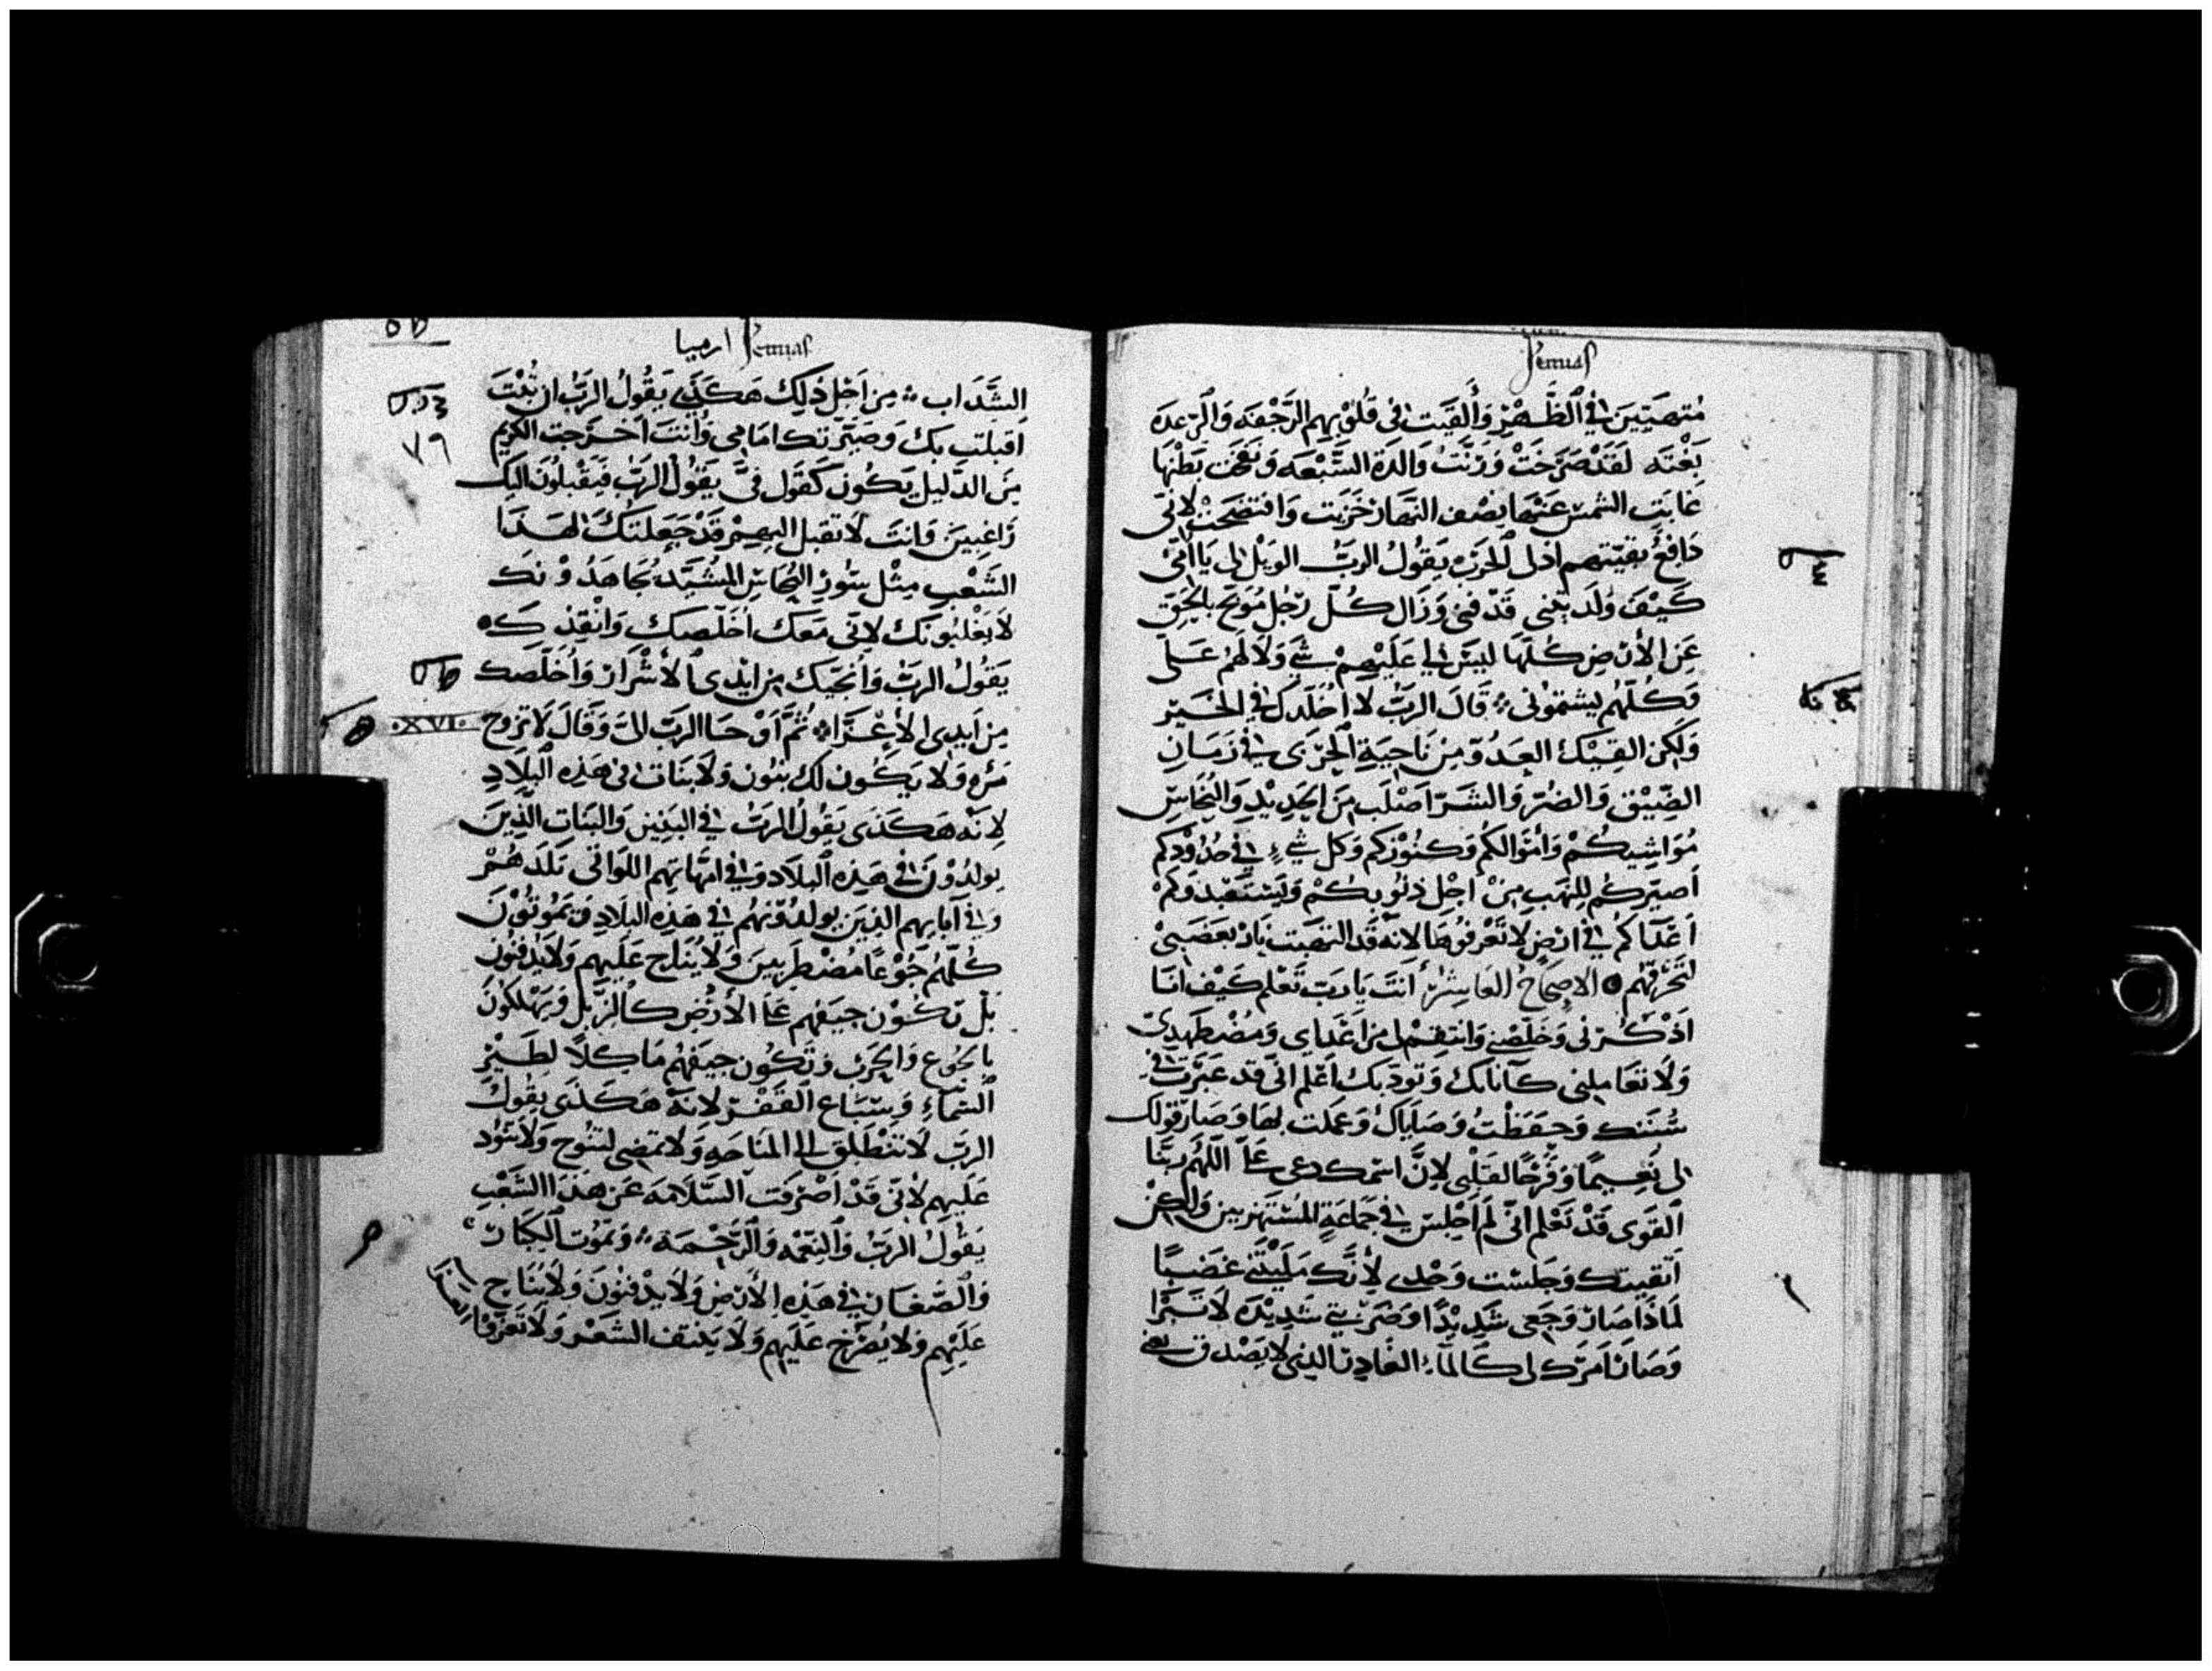 Jemias
متهيتين في الظهر وألقيت في قلوبهم الرجفه والرعده
بغته لقد صرخت ورنت والدة السبعه ونفخت بطنها
غابت الشمس عنها نصف النهار خزيت وافتضحت لاني
دافع بقيتهم اذلى للحرب يقول الرب الويل لي يا أمي
كيف ولدتيني قد فني وزال كل رجل موبخ بالحق
عن الأرض كلها ليس لي عليهم شي ولا لهم علي
وكلهم يشتموني قال الرب لا اخلدك في الخير
ولكن القيك العدو من ناحية الجزى في زمان
الضيق والضر والشر اصلب من الحديد والنحاس
مواشيكم وأموالكم وكنوزكم وكل شيء في حدودكم
اصيركم للنهب من اجل ذنوبكم وليستعبدوكم
اعداكم في ارض لا تعرفوها لانه قد التهبت نار بغضبي
لتحرقهم الاصحاح العاشر أنت يا رب تعلم كيف انا
اذكرني وخلصني وانتقم لي من اعداي ومضطهدي
ولا تعاملني كآناتك وتودتك اعلم اني قد عبرت في
سننك وحفظت وصاياك وعملت بها وصار قولك
لي نعيما وفرحا لقلبي لان اسمك دعي علي اللهم ربنا
القوى قد تعلم اني لم اجلس في جماعة المستهزيين ولكن
اتقيتك وجلست وحدى لأنك مليتني غضبا
لماذا صار وجعى شديدا وضربتي شديده لا تبرا
وصار امرك لي كالماء الغادر الذي لا يصدق
ارميا Jemias
٧٩
الشداب من اجل ذلك هكذى يقول الرب ان تبت
اقبلت بك وصيرتك امامي وأنت اخرجت الكريم
من الذليل يكون كقول في يقول الرب فيقبلون اليك
راغبين وانت لا تقبل اليهم قد جعلتك لهذا
الشعب مثل سور النحاس المشيد يجاهدونك
لا يغلبونك لاني معك اخلصك وانقذك
يقول الرب وأنجيك من ايدى الأشرار وأخلصك
XVI
من ايدى الأعزا ثم أوحا الرب الي وقال لا تزوج
مره ولا يكون لك بنون ولا بنات في هذه البلاد
لانه هكذى يقول الرب في البنين والبنات الذين
يولدون في هذه البلاد وفي امهاتهم اللواتي تلدهم
وفي آبايهم الذين يولدونهم في هذه البلاد يموتون
كلهم جوعا مضطربين ولا يناح عليهم ولا يدفنون
بل تكون جيفهم على الأرض كالزبل ويهلكون
بالجوع والحرب وتكون جيفهم ماكلا لطير
السماء وسباع القفر لانه هكذى يقول
الرب لا تنطلق الى المناحه ولا تمضي لتنوح ولا تنود
عليهم لاني قد اصرفت السلامه عن هذا الشعب
يقول الرب والنعمه والرحمة وتموت الكبار
والصغار في هذه الأرض ولا يدفنون ولا يناح
عليهم ولا يصرخ عليهم ولا ينتف الشعر ولا تعزوا